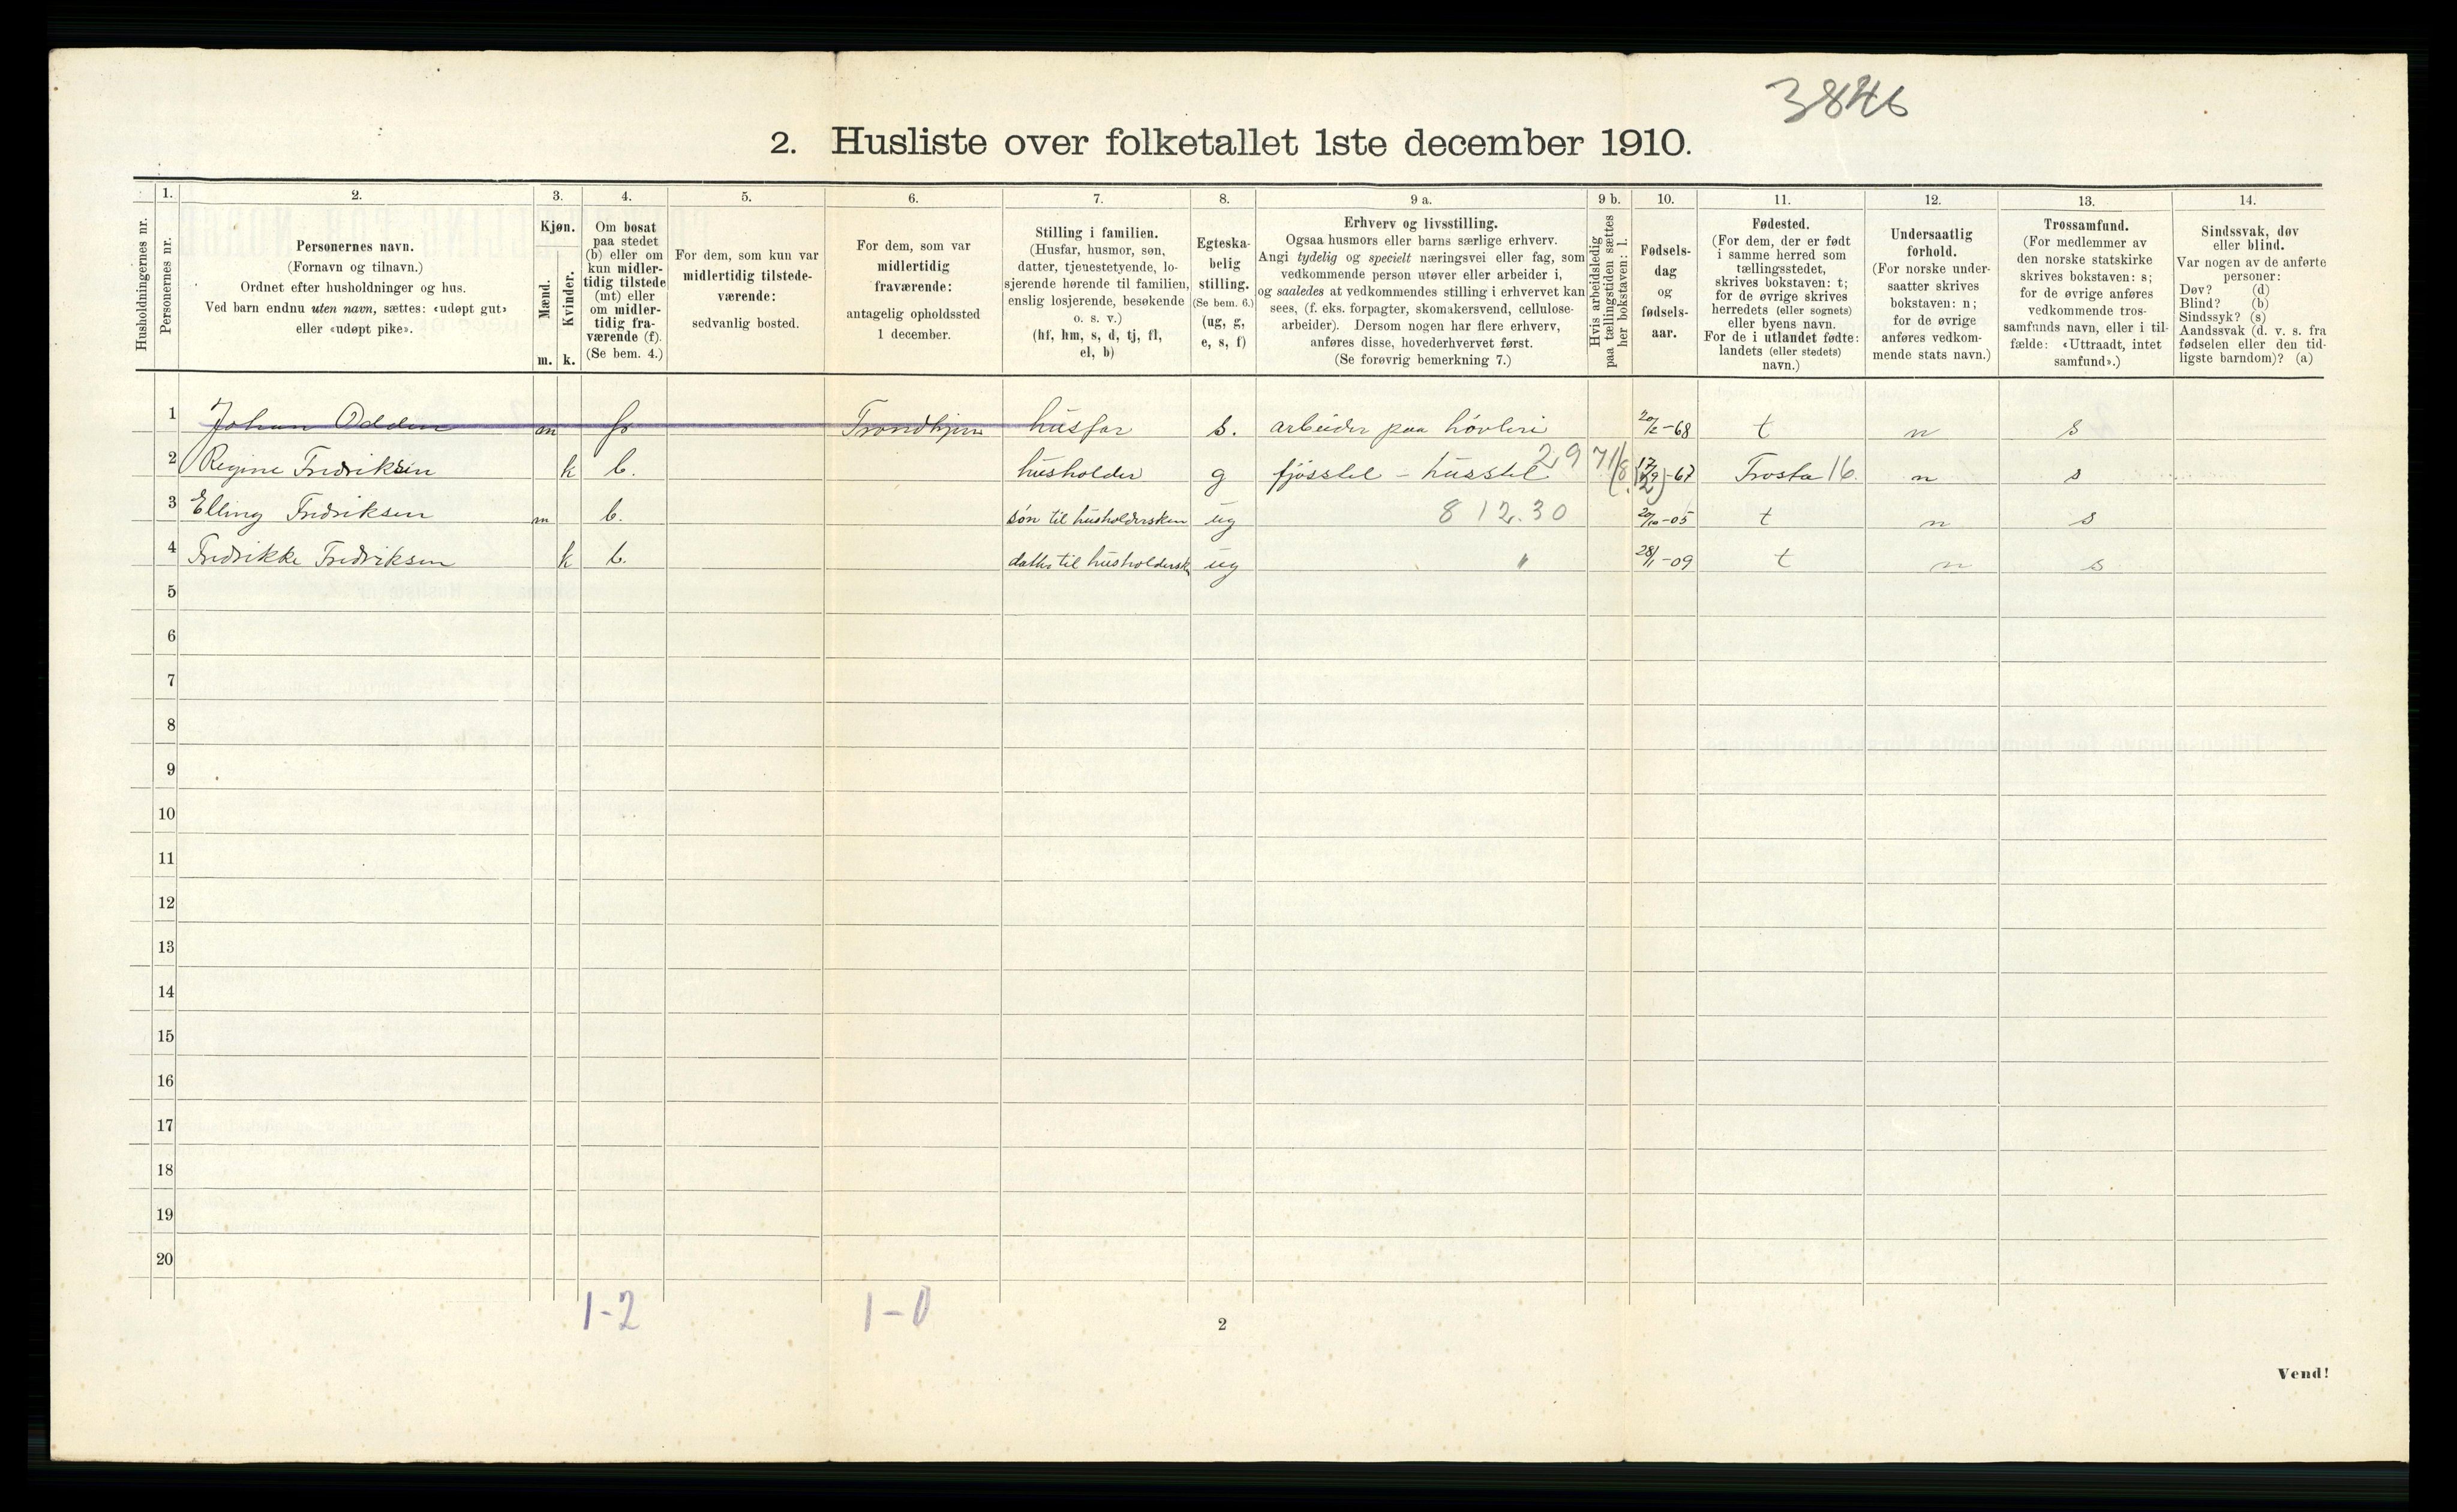 3846
2. Husliste over folketallet 1ste december 1910.
Husholdningernes nr.
1.
Personernes nr.
2.
Personernes navn.
(Fornavn og tilnavn.)
Ordnet efter husholdninger og hus.
Ved barn endnu uten navn, sættes: «udøpt gut»
eller «udøpt pike».
3.
Kjøn.
Mænd.
Kvinder.
m. k.
4.
Om bosat
paa stedet
(b) eller om
kun midler-
tidig tilstede
(mt) eller
om midler-
tidig fra-
værende (f).
(Se bem. 4.)
5.
For dem, som kun var
midlertidig tilstede-
værende:
sedvanlig bosted.
6.
For dem, som var
midlertidig
fraværende:
antagelig opholdssted
1 december.
7.
Stilling i familien.
(Husfar, husmor, søn,
datter, tjenestetyende, lo-
sjerende hørende til familien,
enslig losjerende, besøkende
o. s. v.)
(hf, hm, s, d, tj, fl,
el, b)
8.
Egteska-
belig
stilling.
(Se bem. 6.)
(ug, g,
e, s, f)
9 a.
Erhverv og livsstilling.
Ogsaa husmors eller barns særlige erhverv.
Angi tydelig og specielt næringsvei eller fag, som
vedkommende person utøver eller arbeider i,
og saaledes at vedkommendes stilling i erhvervet kan
sees, (f. eks. forpagter, skomakersvend, cellulose-
arbeider). Dersom nogen har flere erhverv,
anføres disse, hovederhvervet først.
(Se forøvrig bemerkning 7.)
9 b.
Hvis arbeidsledig
paa tællingstiden sættes
her bokstaven: l.
10.
Fødsels-
dag
og
fødsels-
aar.
11.
Fødested.
(For dem, der er født
i samme herred som
tællingsstedet,
skrives bokstaven: t;
for de øvrige skrives
herredets (eller sognets)
eller byens navn.
For de i utlandet fødte:
landets (eller stedets)
navn.)
12.
Undersaatlig
forhold.
(For norske under-
saatter skrives
bokstaven: n;
for de øvrige
anføres vedkom-
mende stats navn.)
13.
Trossamfund.
(For medlemmer av
den norske statskirke
skrives bokstaven: s;
for de øvrige anføres
vedkommende tros-
samfunds navn, eller i til-
fælde: «Uttraadt, intet
samfund».)
14.
Sindssvak, døv
eller blind.
Var nogen av de anførte
personer:
Døv? (d)
Blind? (b)
Sindssyk? (s)
Aandssvak (d. v. s. fra
fødselen eller den tid-
ligste barndom)? (a)
1 Johan Odden m f Trondhjem husfar s. arbeider paa høvleri 20/2-68 t n s
2 Regine Fredriksen k b. husholder g fjøsstel - husstel 29 -67 Frosta 16 n s
3 Elling Fredriksen m b. søn til husholdersken ug 812.30 20/10-05 t n s
4 Fredrikke Fredriksen k b. datter til husholdersk ug " 28/1-09 t n s
5
6
7
8
9
10
11
12
13
14
15
16
17
18
19
20
1-2 1-0
2
Vend!